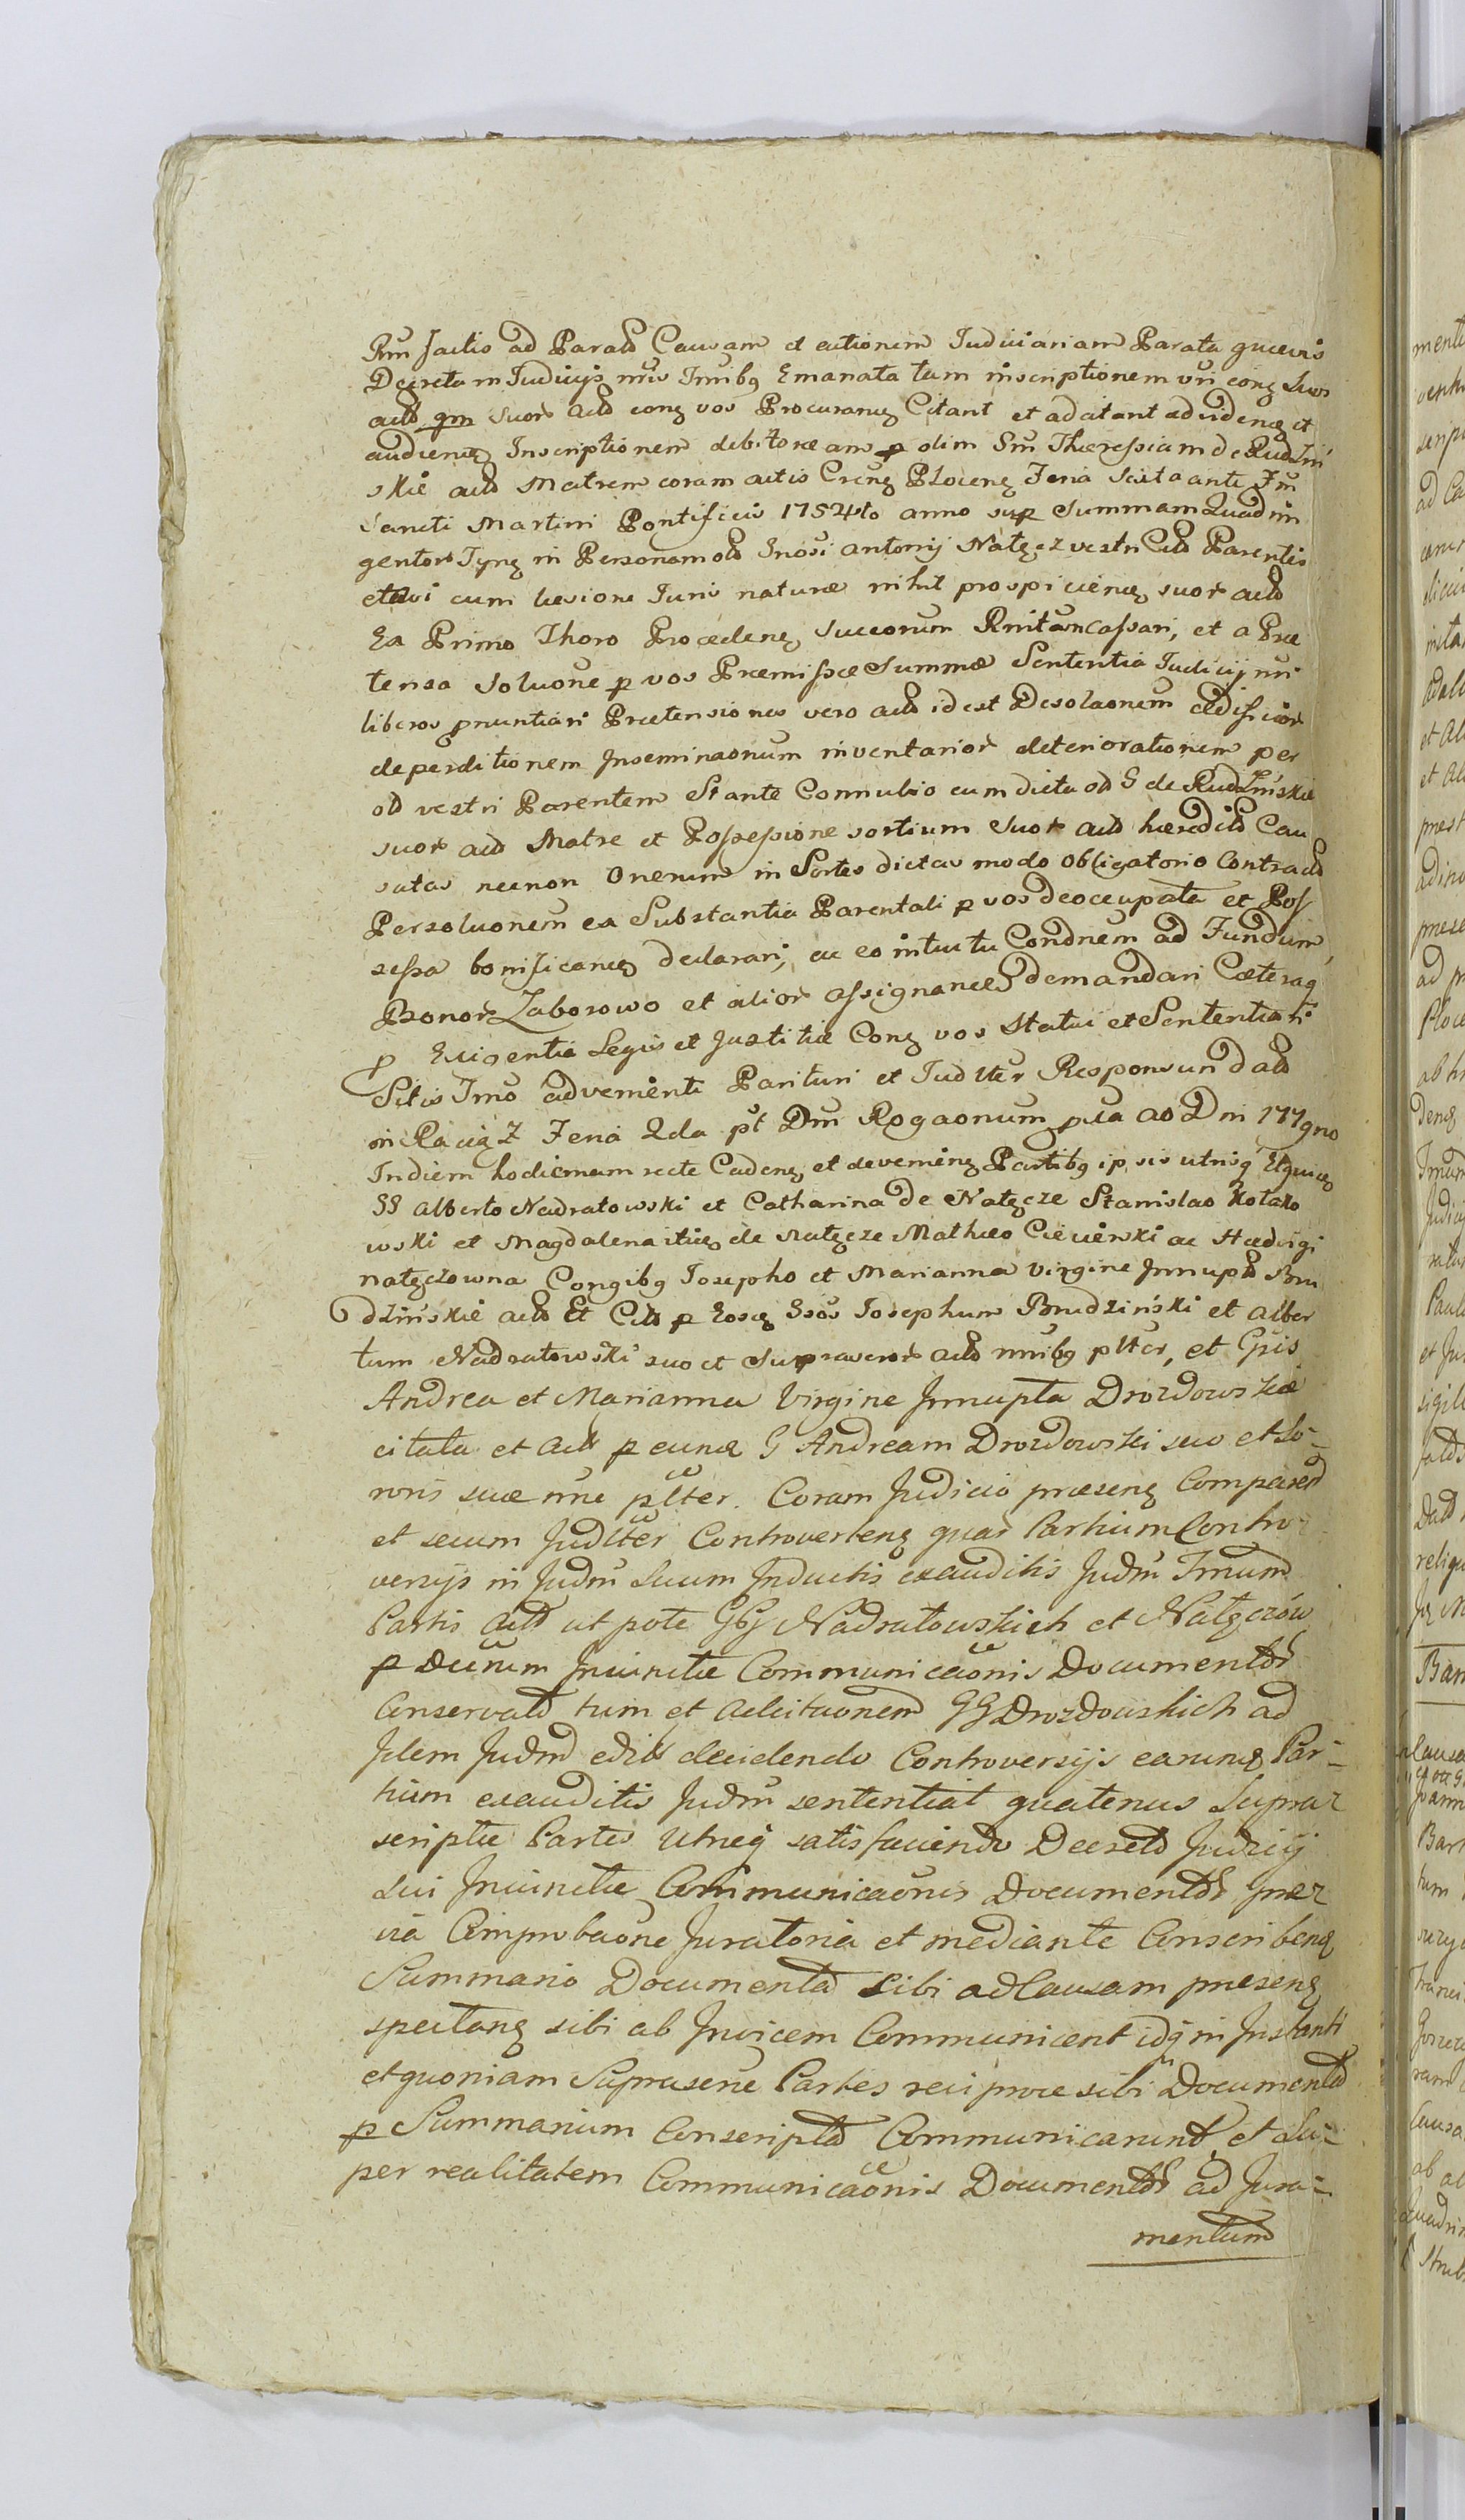 Rm factio ad Parad Causam et actionem Judiciariam Parata quaevis
Decreta in Judicijs nris Tmibq Emanata tum inscriptionem vri conq Suos
actd qm suor actd conq vos Procuranq Citant et adcitant ad videnq et
audienq Inscriptionem debitoream p olim Sm Theressiam de Rudziń
skie actd Matrem coram actis Crenq Plocenq Feria Sexta ante Fm
Sancti Martini Pontificis 1754to anno sup Summam Quadrin
gentor Tynq in Personam od Gnosi antonij Natęcz vestri Citd Parentis
cum laesione Juris naturae nihil prospicienq suor actd
Ea Primo Thoro Procedenq succorum Cassari, et a Prae
tensa soluone p vos Praemissae Summae Sententia Judicij nri
liberos pnuntiari Praetensiones vero actd id est Desolaonem aedificior
deperditionem Inseminaonum inventarior deteriorationem per
od vestri Parentem Stante Connubio cum dicta od G de Rudzińskie
suor actd Matre et Possessione sortium suor actd haeredild Cau
satas necnon Onerum in Sortes dictas modo obligatorio Contractd
Persoluonem ex Substantia Parentali p vos deoccupata et Pos
sessa bonificanq declarari, ac eo intuitu Condnem ad Fundum,
Bonor Zaborowo et alior assignanda demandari Caeteraq
p Exigentia Legis et Justitiae Conq vos Statui et Sententiari
Sitis Tmo advenienti Parituri et Judlter Responsuri dald
in Raciąz Feria 2da pt Dm Rogaonum pxa ao Dni 1779no
In diem hodiernam recte Cadenq et devenienq Partibq ipsis utrisq
GG Alberto Nadratowski et Catharina de Natęcze Stanislao Kotako
wski et Magdalena itiq de Natęcze Mathaeo Ciecierski ac Haedvigi
natęczowna Congibq Josepho et Marianna Virgine Innupta Bru
dzińskie actd Et Citd p Eosq Gsos Josephum Brudziński et alber
tum Nadratowski suo et suprascror actd nnibq plter, et Gsis
Andrea et Marianna Virgine Innupta Drozdowskie
citata et actd p eunq G Andream Drozdowski suo et So-
roris suae nne plter. Coram Judicio praesenq Comparend
et secum Judlter Controvertenq quar Partium Contro-
versijs in Judm Suum Inductis exauditis Judm Tmum
Partis Actd ut pote GG Nadratowskich et Natęczów
p Decrum Invincitae Communicaonis Documentor
Conservatd tum et adcitaonem GG Drozdowskich ad
Idem Judmd editd decidendo Controversijs earunq Par-
tium exauditis Judm sententiat quatenus Supra
scriptae Partes Utreq satisfaciendo Decreto Judicij
sui Invincitae Communicaonis Documentor prae
via Comprobaone Juratoria et mediante Conscribenq
Summario Documenta sibi ad Causam praesenq
spectanq sibi ab Invicem Communicent idq in Instanti
et quoniam Suprascrie Partes reciproce sibi Documenta
p Summarium Conscripta Communicarunt, et Su-
per realitatem Communicaonis Documentor ad Jura-
mentum